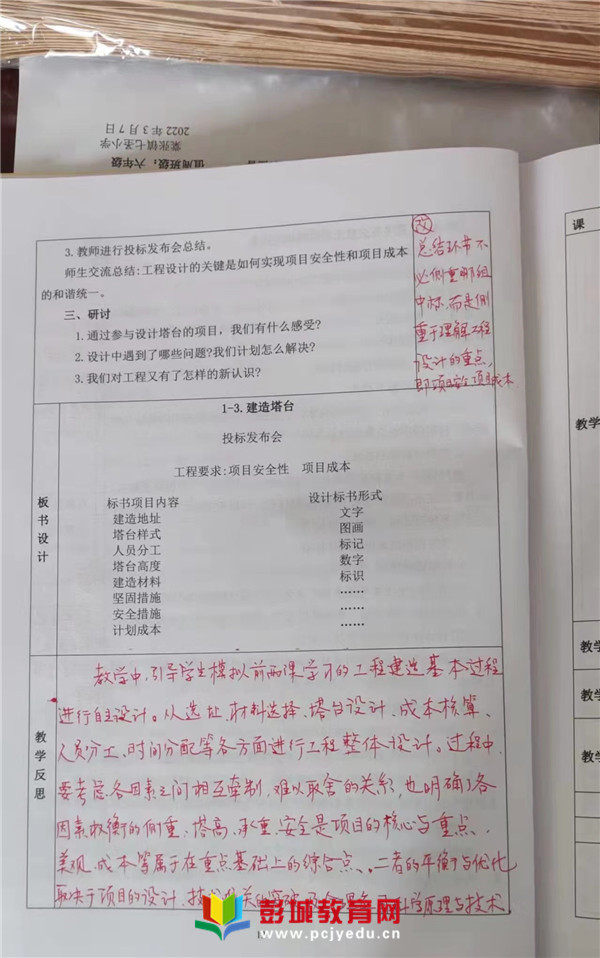 2022 年 3 月 7 日
棠张镇七圣小学
值周班级：六年级
课
3. 教师进行投标发布会总结。
师生交流总结:工程设计的关键是如何实现项目安全性和项目成本
的和谐统一。
三、研讨
1. 通过参与设计塔台的项目，我们有什么感受?
2. 设计中遇到了哪些问题?我们计划怎么解决?
3. 我们对工程又有了怎样的新认识?
改
总结环节不
必侧重哪组
中标,而是侧
重于理解工程
设计的重点,
即项目安全 项目成本
板书设计
1-3. 建造塔台
投标发布会
工程要求:项目安全性 项目成本
标书项目内容 设计标书形式
建造地址 文字
塔台样式 图画
人员分工 标记
塔台高度 数字
建造材料 标识
坚固措施 ……
安全措施 ……
计划成本
教学
教学
教学
教学
教学反思
教学中,引导学生模拟前两课学习的工程建造基本过程
进行自主设计。从选址、材料选择、塔台设计、成本核算、
人员分工、时间分配等各方面进行工程整体设计。过程中,
要考虑各因素之间相互牵制,难以取舍的关系,也明确了各
因素权衡的侧重、塔高、承重、安全是项目的核心与重点、
美观、成本等属于在重点基础上的综合点、二者的平衡与优化
取决于项目的设计、科学原理与技术
彭城教育网
www.pcjyedu.cn